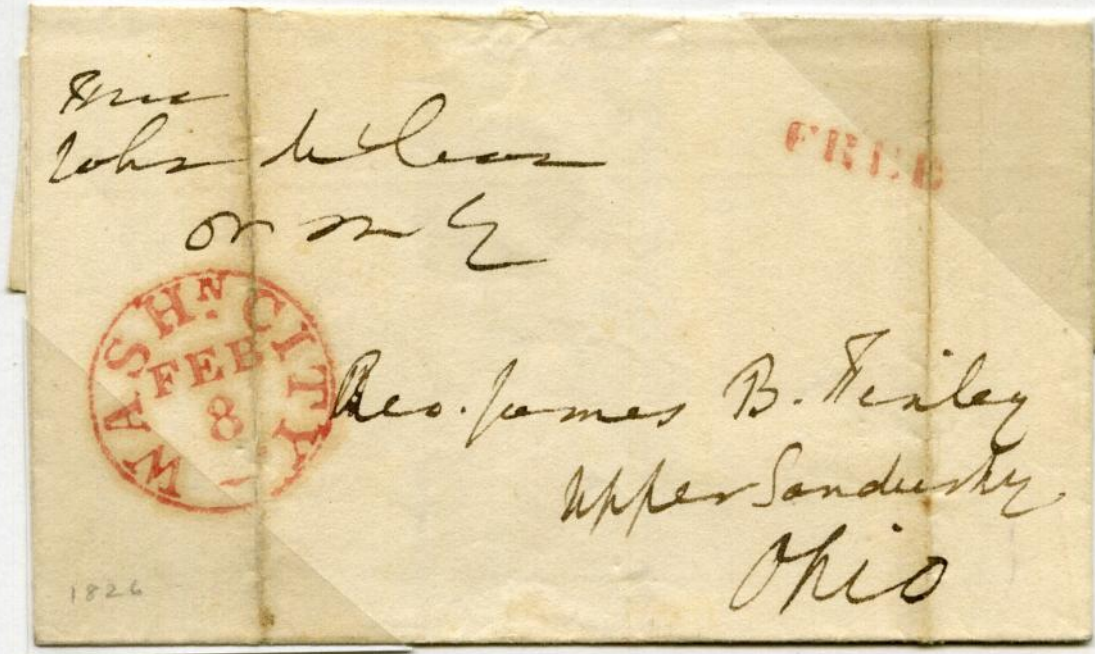 Free
John McLean
P M G
FREE
WASHN. CITY
FEB
8
Rev. James B. Finley
Upper Sandusky
Ohio
1826